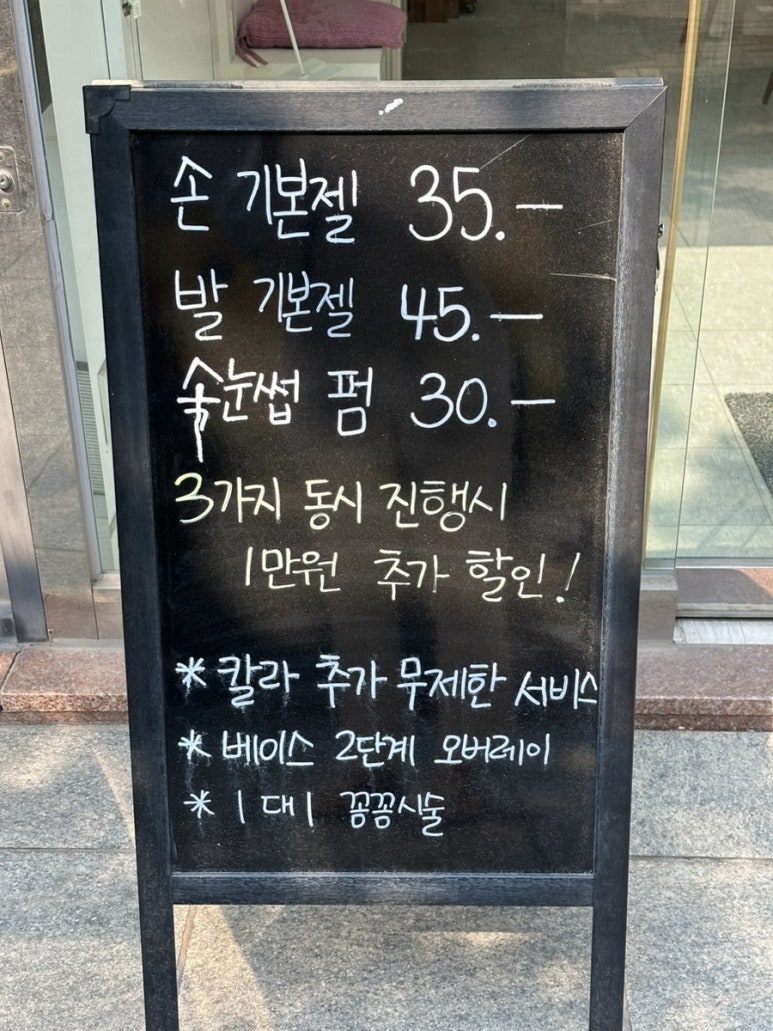 손 기본젤 35.-
발 기본젤 45.-
속눈썹 펌 30.-
3가지 동시 진행시
1만원 추가 할인!
* 칼라 추가 무제한 서비스
* 베이스 2단계 오버레이
* 1 대 1 꼼꼼시술